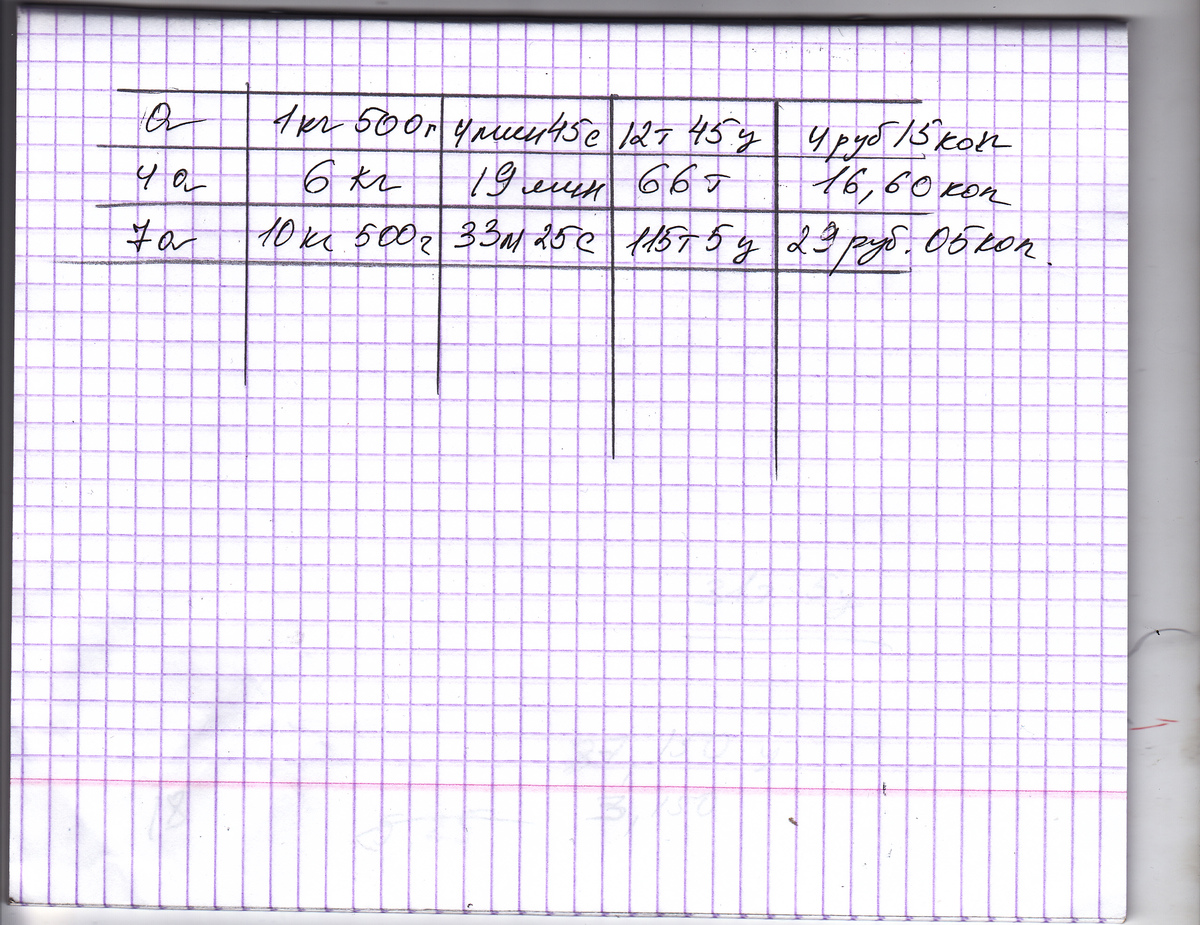 a 1кг 500г 4мин45с 12т 45ц 4руб15коп
4a 6 кг 19мин 66т 16,60коп
7a 10кг 500г 33м 25с 115т5ц 29руб. 05коп.